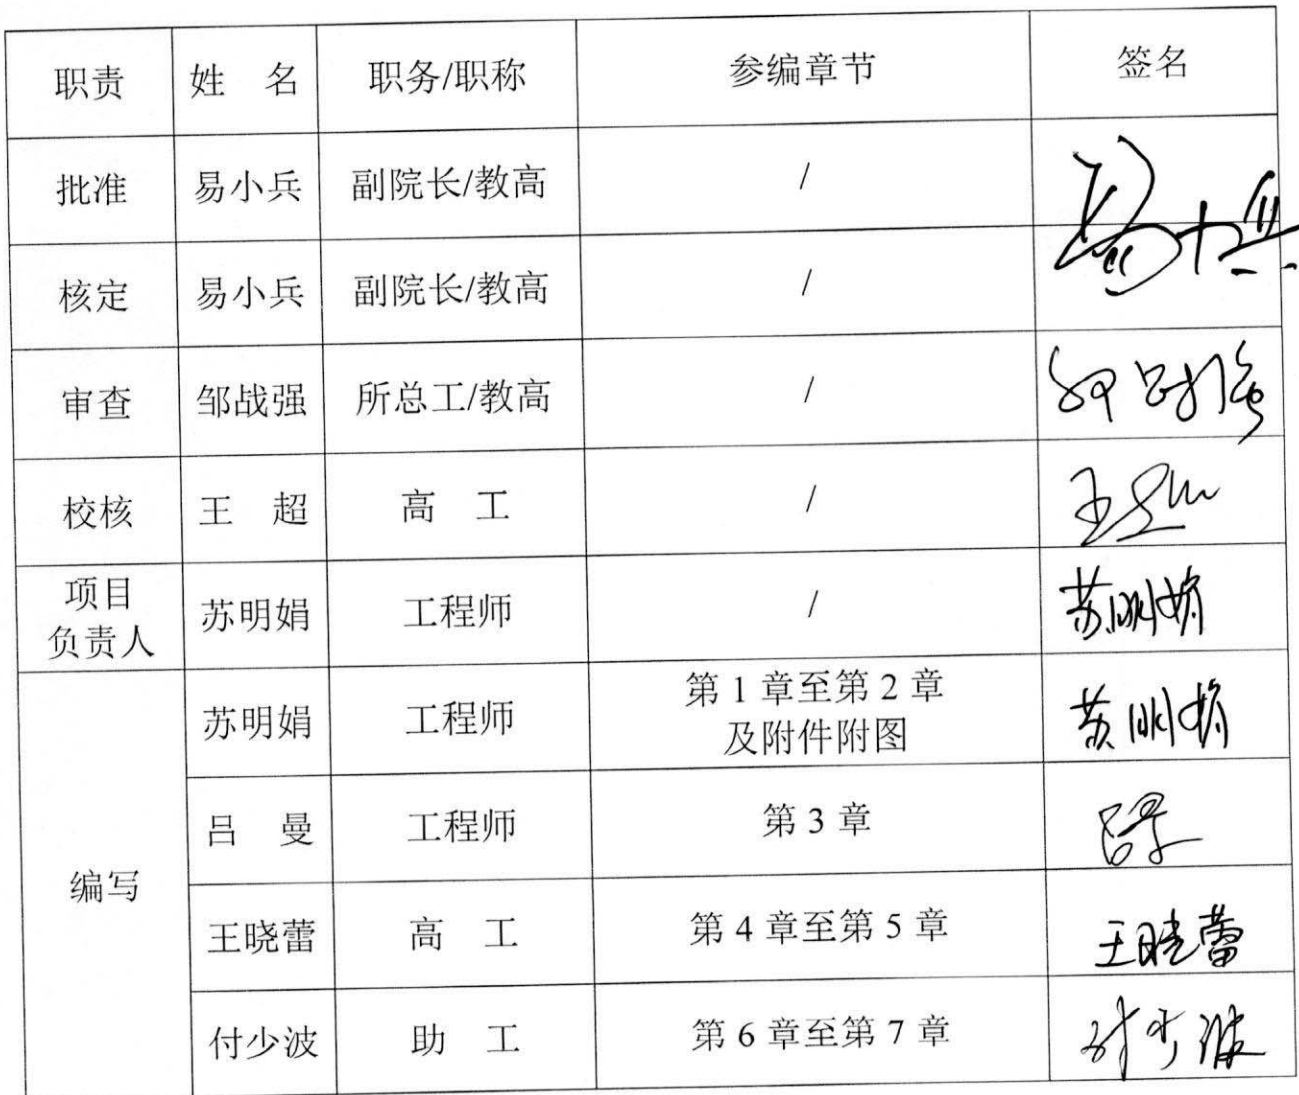 职责 姓 名 职务/职称 参编章节 签名
批准 易小兵 副院长/教高 /
核定 易小兵 副院长/教高 /
审查 邹战强 所总工/教高 /
校核 王 超 高 工 /
项目
负责人 苏明娟 工程师 / 苏明娟
编写 苏明娟 工程师 第 1 章至第 2 章
及附件附图 苏明娟
吕 曼 工程师 第 3 章
王晓蕾 高 工 第 4 章至第 5 章 王晓蕾
付少波 助 工 第 6 章至第 7 章 付少波